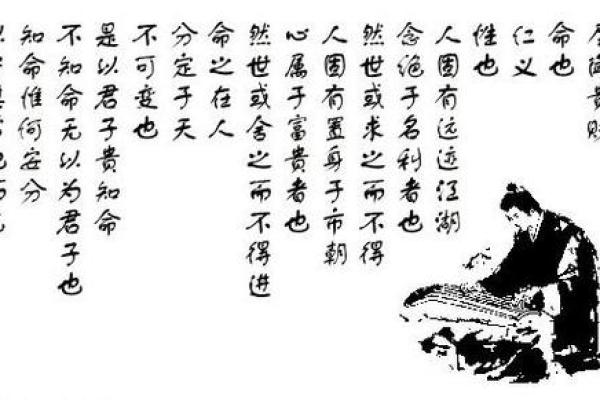 命也
仁义
性也
人固有远迹江湖
念绝于名利者也
然世或求之而不得
人固有置身于市朝
心属于富貴者也
然世或舍之而不得进
命之在人
分定于天
不可变也
是以君子貴知命
不知命无以为君子也
知命惟何安分